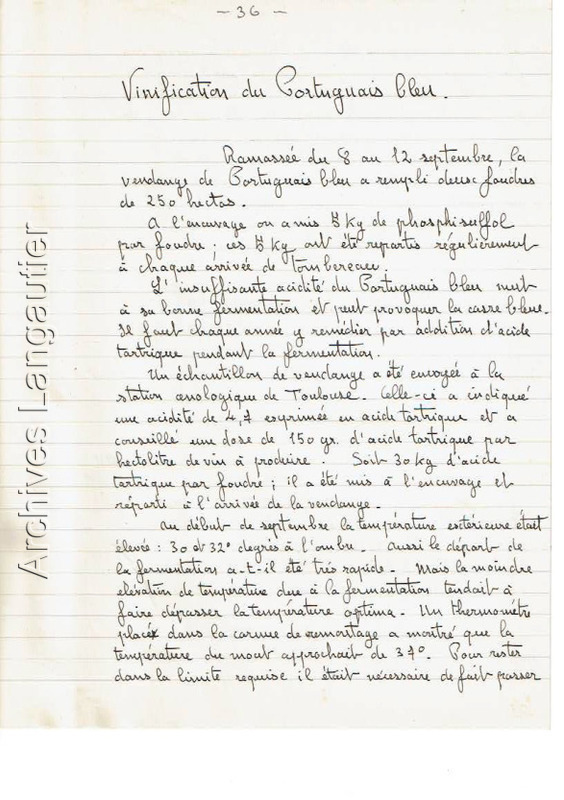 - 36 -
Vinification du Portuguais bleu.
Ramassée du 8 au 12 septembre, la
vendange de Portuguais bleu a rempli deux foudres
de 250 hectos.
A l'encuvage on a mis 5 kg de phosphisulfol
par foudre ; ces 5 kg ont été repartis régulièrement
à chaque arrivée de Tombereau.
L'insuffisante acidité du Portuguais bleu nuit
à sa bonne fermentation et peut provoquer la casse bleue.
Il faut chaque année y remédier par addition d'acide
tartrique pendant la fermentation.
Un échantillon de vendange a été envoyée à la
station œnologique de Toulouse. Celle-ci a indiqué
une acidité de 4,7 exprimée en acide tartrique et a
conseillé une dose de 150 gr. d'acide tartrique par
hectolitre de vin à produire. Soit 30 kg d'acide
tartrique par foudre ; il a été mis à l'encuvage et
réparti à l'arrivée de la vendange.
Au début de septembre la température extérieure était
élevée : 30 et 32° degrès à l'ombre. Aussi le départ de
la fermentation a-t-il été très rapide. Mais la moindre
elévation de température due à la fermentation tendait à
faire dépasser la température optima. Un thermomètre
placé dans la cornue de remontage a montré que la
température du mout approchait de 37°. Pour rester
dans la limite requise il était nécessaire de fait passer
Archives Langautier